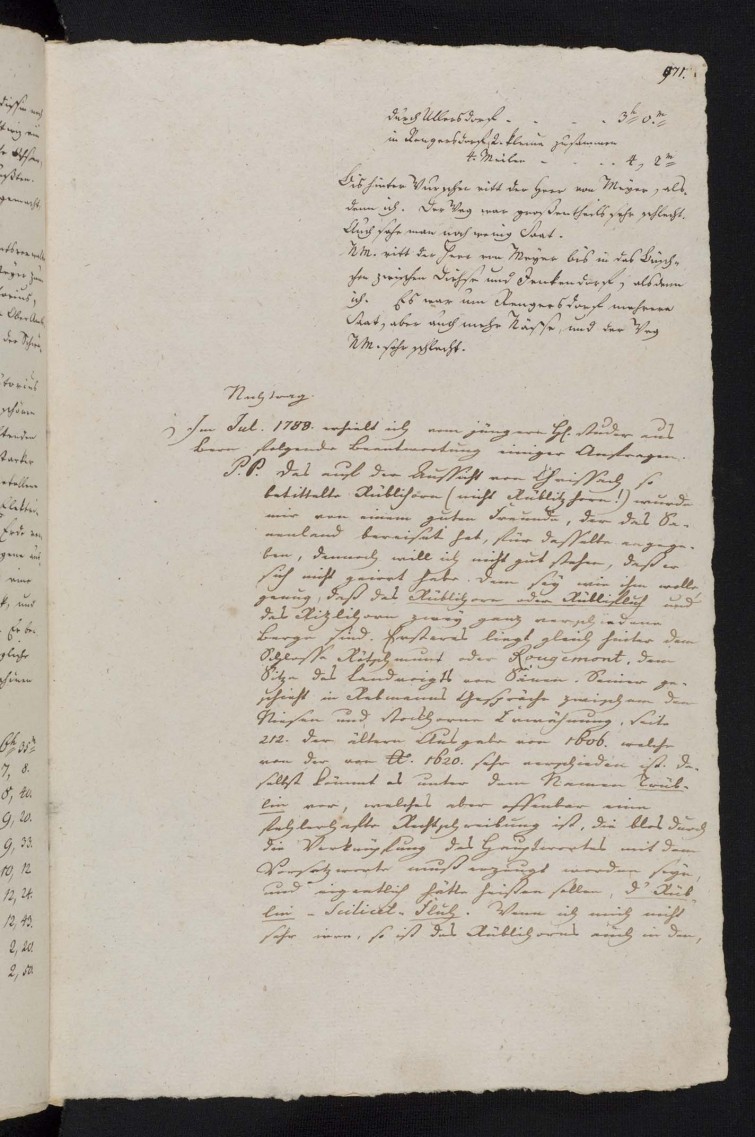 971.
durch Ullersdorf - - - - 3h 0.m
in Rengersdorf, 2. kleine zusammen
4. Meilen - - - - 4, 2m
Bis hinter Wurschen ritt der Herr von Meyer, als-
denn ich. Der Weg war großentheils sehr schlecht.
Auch sahe man noch wenig Saat.
NM. ritt der Herr von Meyer bis in das Büsch-
chen zwischen Diehse und Jenkendorf, alsdenn
ich. Es war um Rengersdorf mehrere
Saat, aber auch mehr Nässe, und der Weg
NM. sehr schlecht.
Nachtrag.
Im Jul. 1788. erhielt ich vom jüngern H. Studer aus
Bern folgende Beantwortung einiger Anfragen.
P.P. Das auf der Aussicht von so
betittelte Rüblihorn (nicht Rüblizhorn!) wurde
mir von einem guten Freunde, der das Sa-
nenland bereiset hat, für dasselbe angege-
ben, dennoch will ich nicht gut stehen, daß er
sich nicht geirrt habe. Dem sey wie ihm wolle
genug, daß das Rüblihorn oder Rüblifluh und
das Rizlihorn zwey ganz verschiedene
Berge sind. Ersteres liegt gleich hinter dem
Schlosse Rötschmunt oder Rougemont, dem
Sitze des Landvoigts von Sanen. Seiner ge-
schieht in Rebmanns Gespräche zwischen dem
Niesen und Stockhorn Erwähnung, Seite
212. der ältern Ausgabe von 1606. welche
von der von A. 1620. sehr verschieden ist. Da-
selbst kömmt es unter dem Namen Trüb-
lin vor, welches aber offenbar eine
fehlerhafte Rechtschreibung ist, die blos durch
die Verknüpfung des Hauptwortes mit dem
Vorsatzworte muß erzeugt worden seyn,
und eigentlich hätte heißen sollen, d' Rüb-
lin - Scilicet - Fluh. Wenn ich mich nicht
sehr irre, so ist das Rüblihorn auch in den,
6h, 35m
7, 8.
8, 40.
9, 20.
9, 33.
10, 12
12, 24.
12, 43.
2, 20.
2, 50.